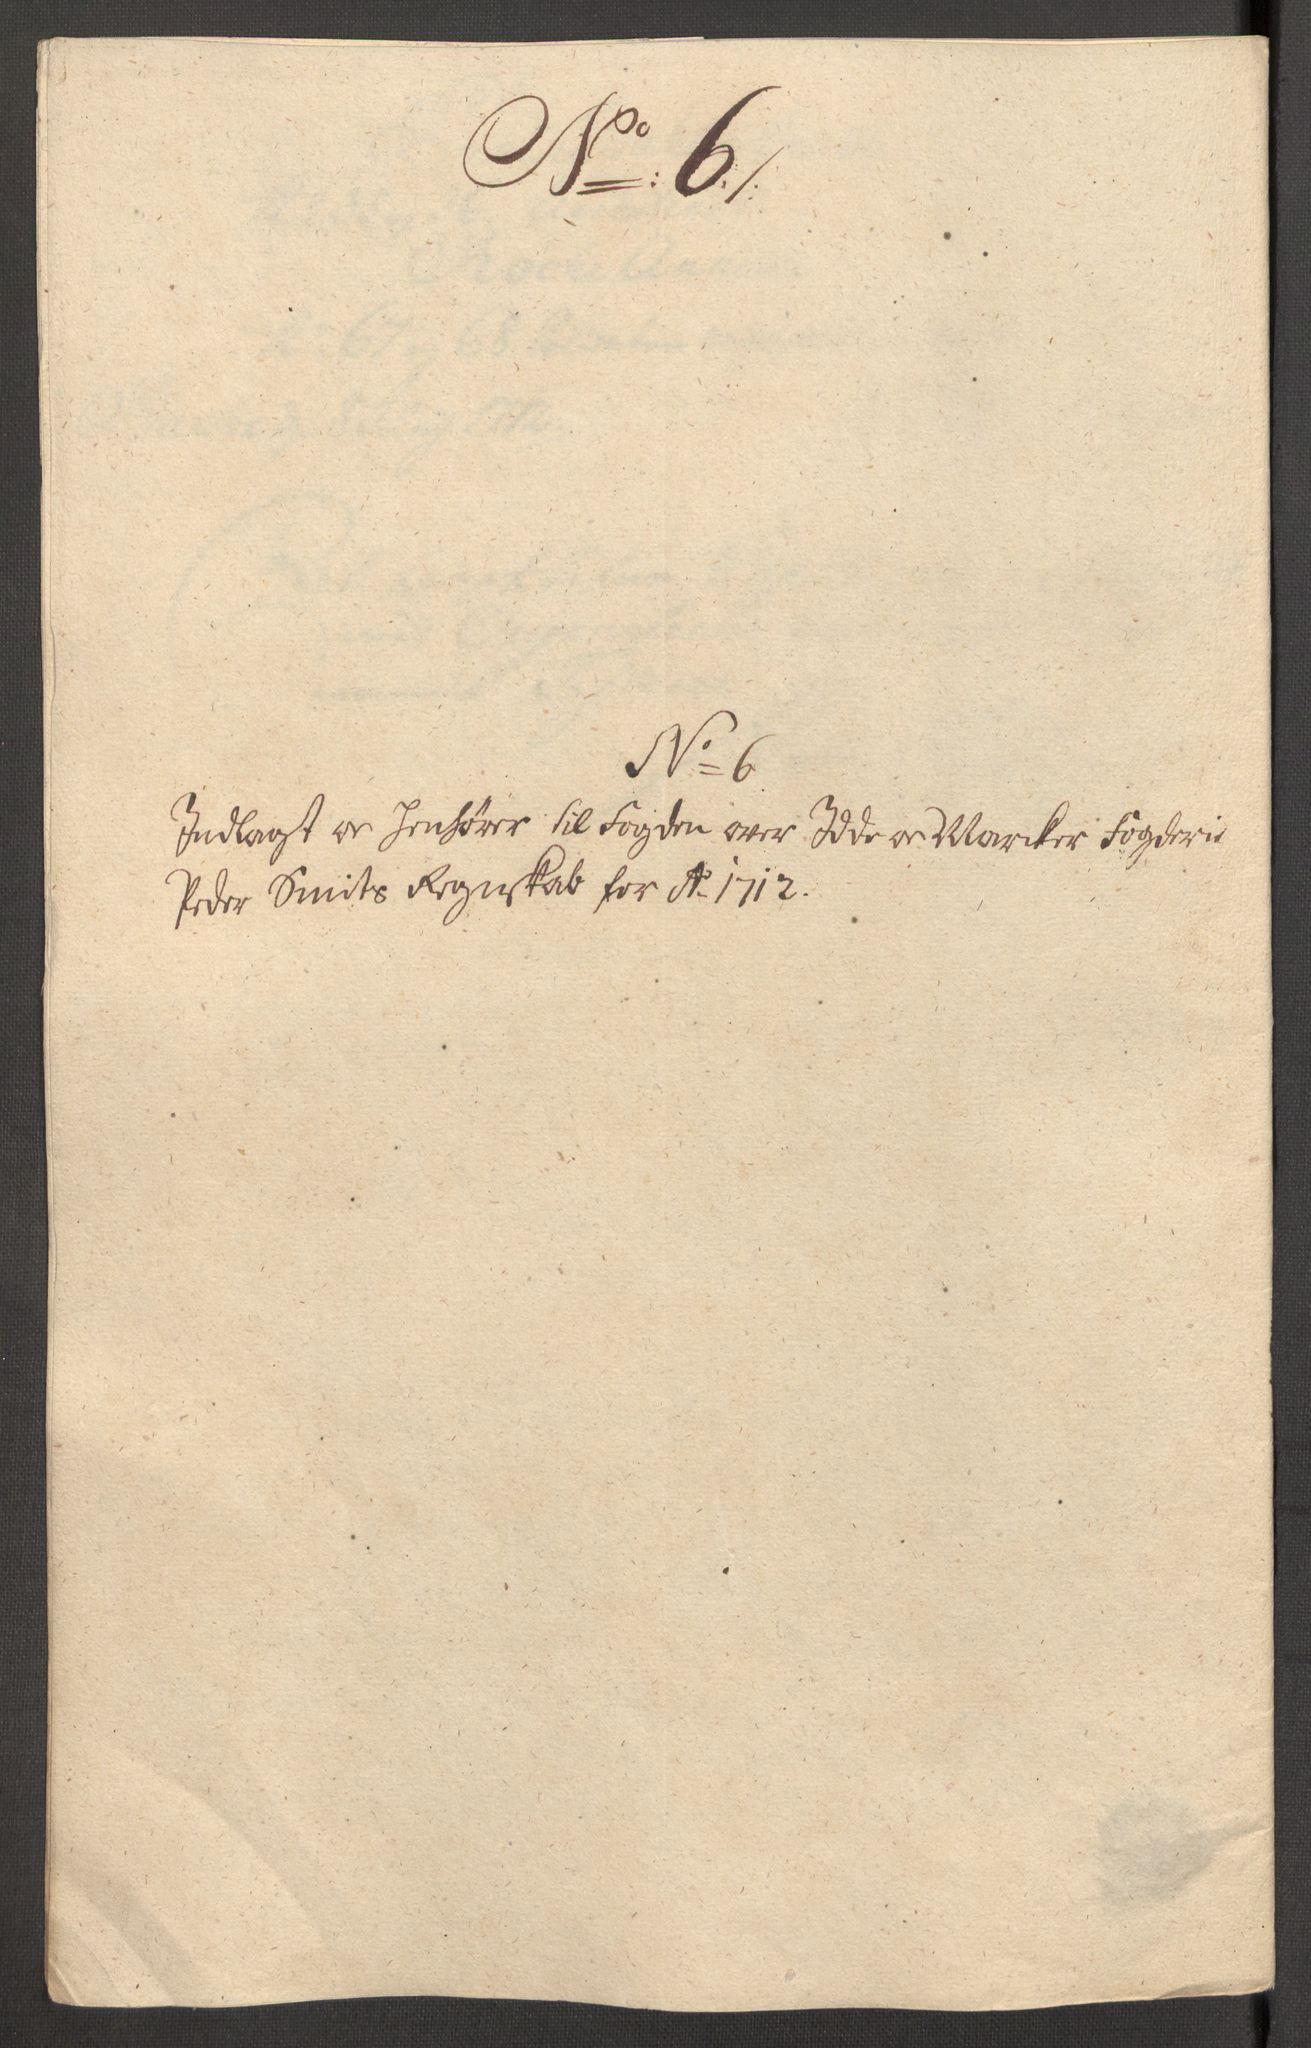 No: 6./:
No 6
Indlagt oc henhører til Fogden over Idde oc Marcker Fogderie
Peder Smits Regnskab for Ao 1712.